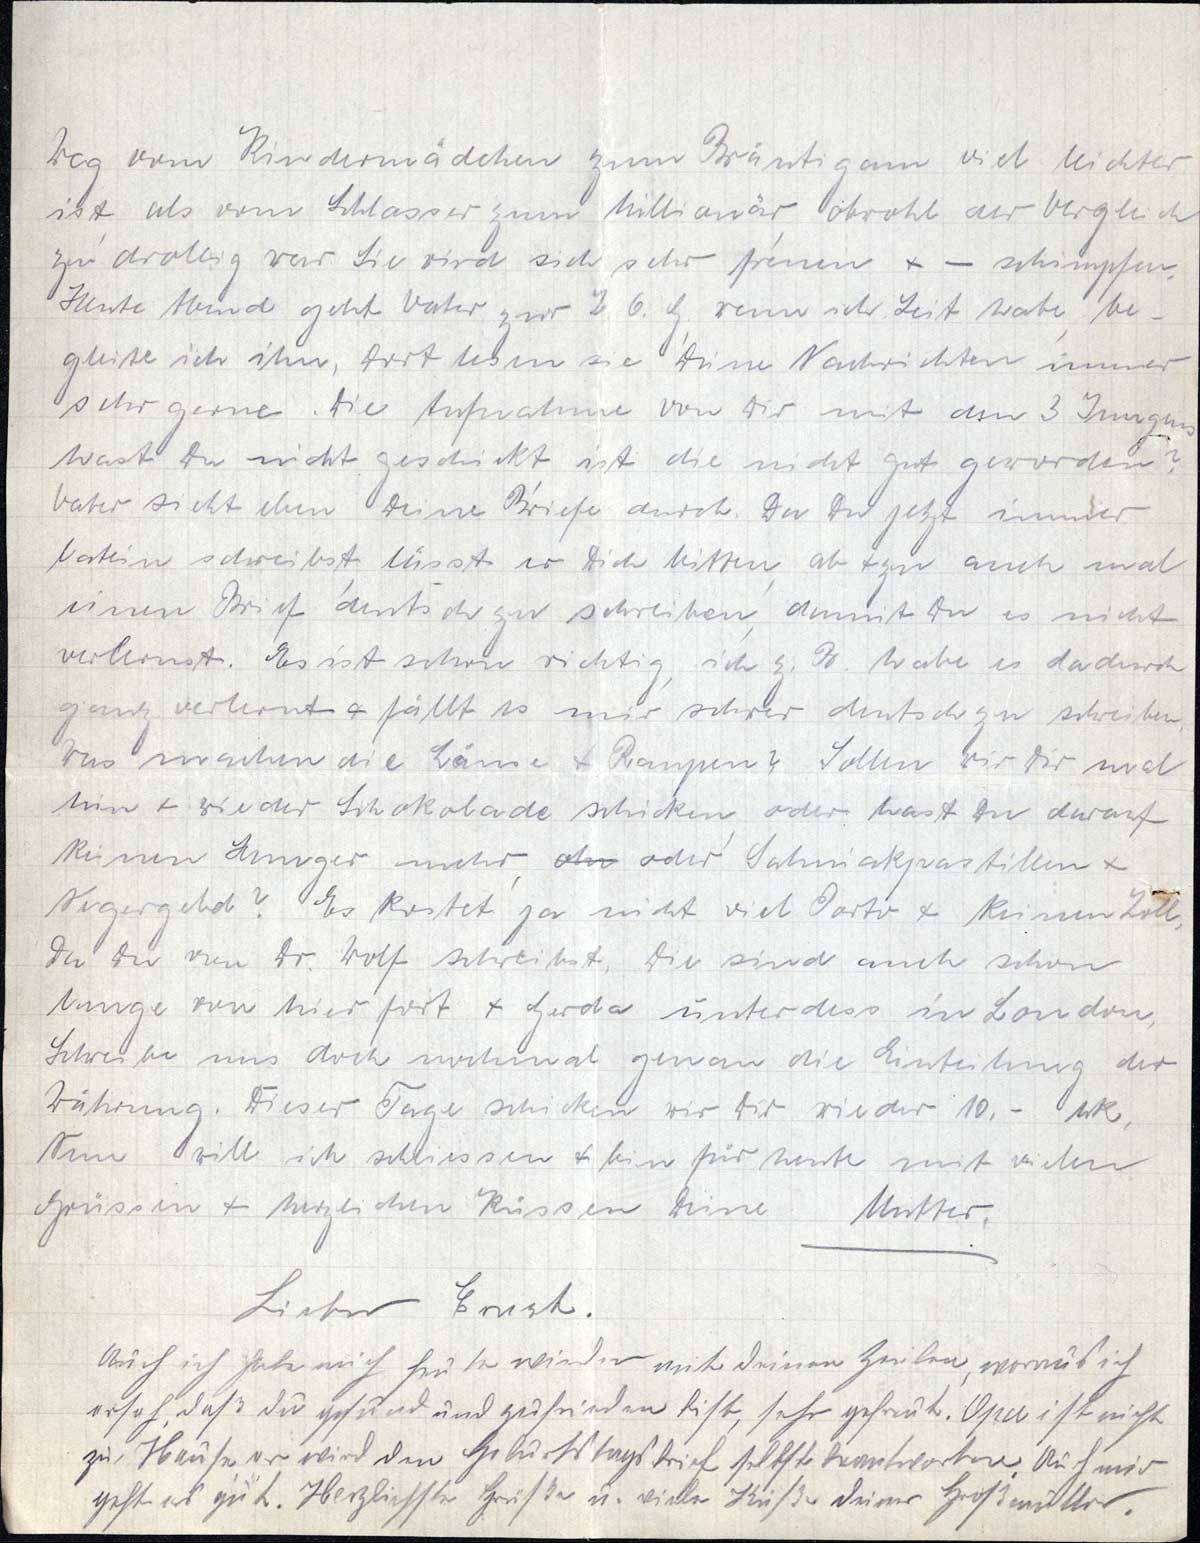 Weg vom Kindermädchen zum Bräutigam viel leichter
ist, als vom Schlosser zum Millionär, obwohl der Vergleich
zu drollig war. Sie wird sich sehr freuen + – schimpfen.
Heute Abend geht Vater zur Z. O. G, wenn ich Zeit habe, be-
gleite ich ihn, dort lesen sie Deine Nachrichten immer
sehr gerne. Die Aufnahme von Dir mit den 3 Jungens
hast Du nicht geschickt ist die nicht gut geworden?
Vater sieht eben Deine Briefe durch. Da Du jetzt immer
latein schreibst lässt er Dich bitten, ab + zu auch mal
einen Brief deutsch zu schreiben, damit Du es nicht
verlernst. Es ist schon richtig, ich z. B. habe es dadurch
ganz verlernt + fällt es mir schwer deutsch zu schreiben.
Was machen die Läuse + Raupen? Sollen wir Dir mal
hin + wieder Schokolade schicken, oder hast Du darauf
keinen Hunger mehr, oder Salmiakpastillen +
Negergeld? Es kostet ja nicht viel Porto + keinen Zoll.
Da Du von Dr. Wolf schreibst. Die sind auch schon
lange von hier fort + Gerda unterdess in London.
Schreibe uns doch nochmal genau die Einteilung der
Währung. Dieser Tage schicken wir Dir wieder 10.- Mk.
Nun will ich schliessen + bin für heute mit vielen
Grüssen + herzlichen Küssen Deine Mutter.
Lieber Ernst.
Auch ich habe mich heute wieder mit deinen Zeilen, woraus ich
ersah, daß du gesund und zufrieden bist, sehr gefreut. Opa ist nicht
zu Hause er wird den Geburtstagsbrief selbst beantworten. Auch mir
geht es gut. Herzlichste Grüße u. viele Küße deiner Großmutter.